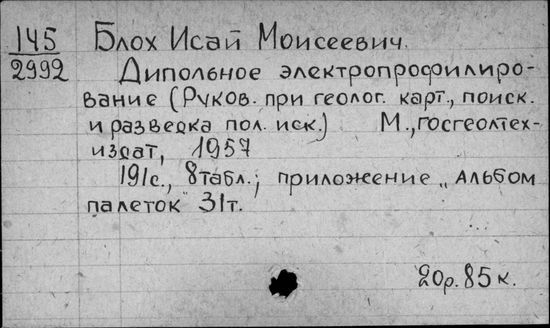 145 Блох Исай Моисеевич.
2992 Дипольное электропрофилиро-
вание (Руков. при геолог. карт., поиск.
и разведка пол. иск.) М., госгеолтех-
издат, 1957
191с., 8табл.; приложение „альбом
палеток" 31т.
20р.85к.